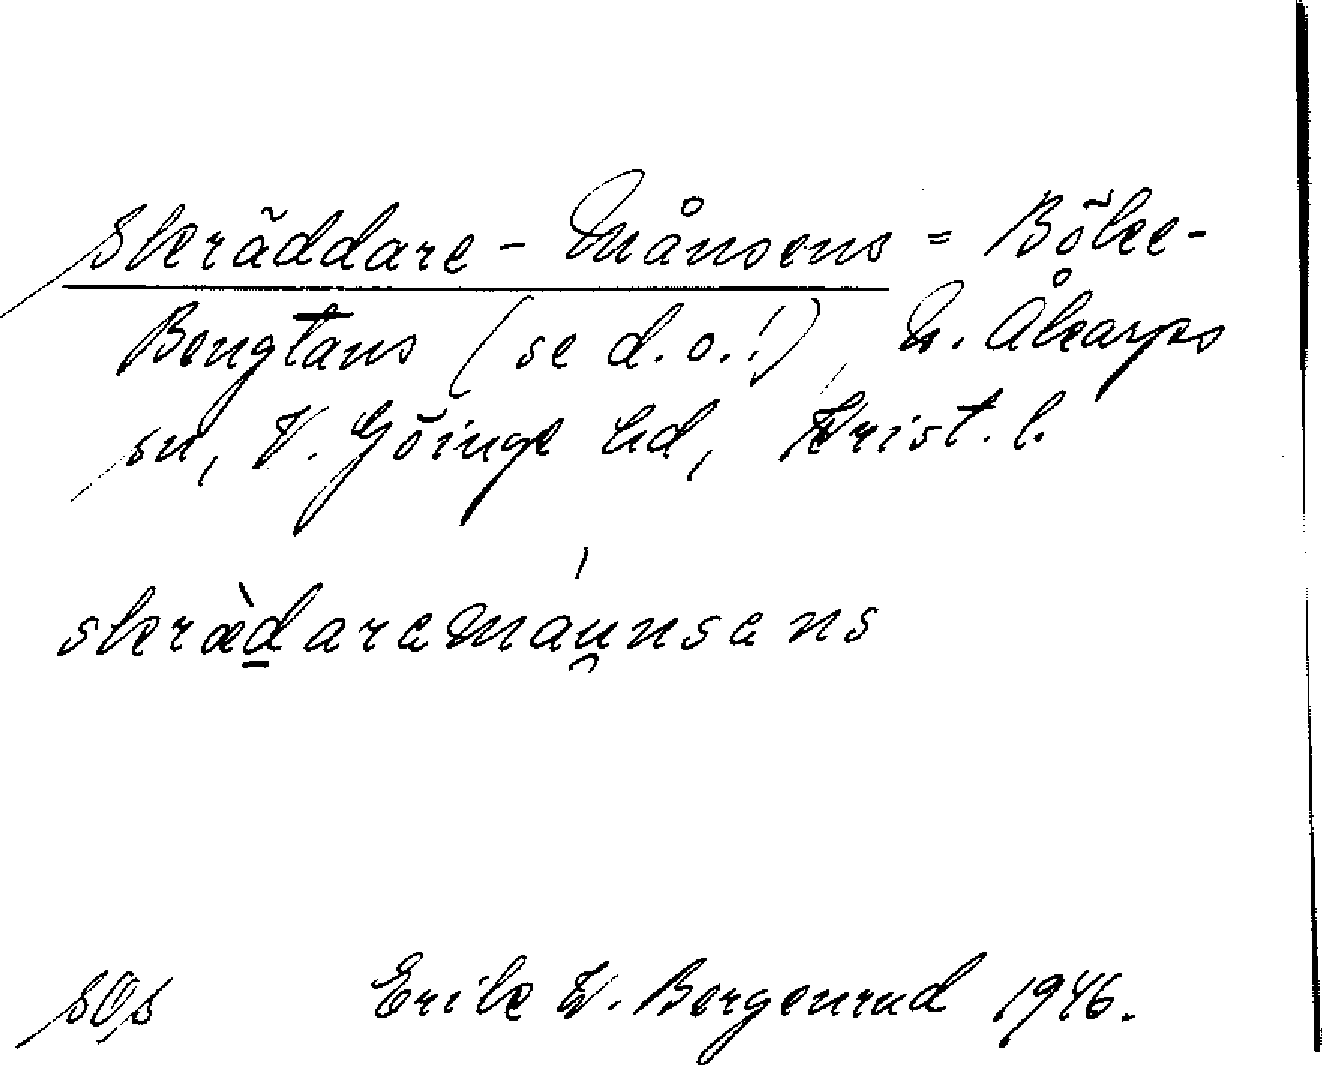 Skräddare-Månsens = Böke-
Bengtans (se d.o.!), N. Åkarps
sn, V. Göinge hd, Krist. l.
skræ̀daramáu̯nsans
SOS Erik W. Bergenrud 1946.